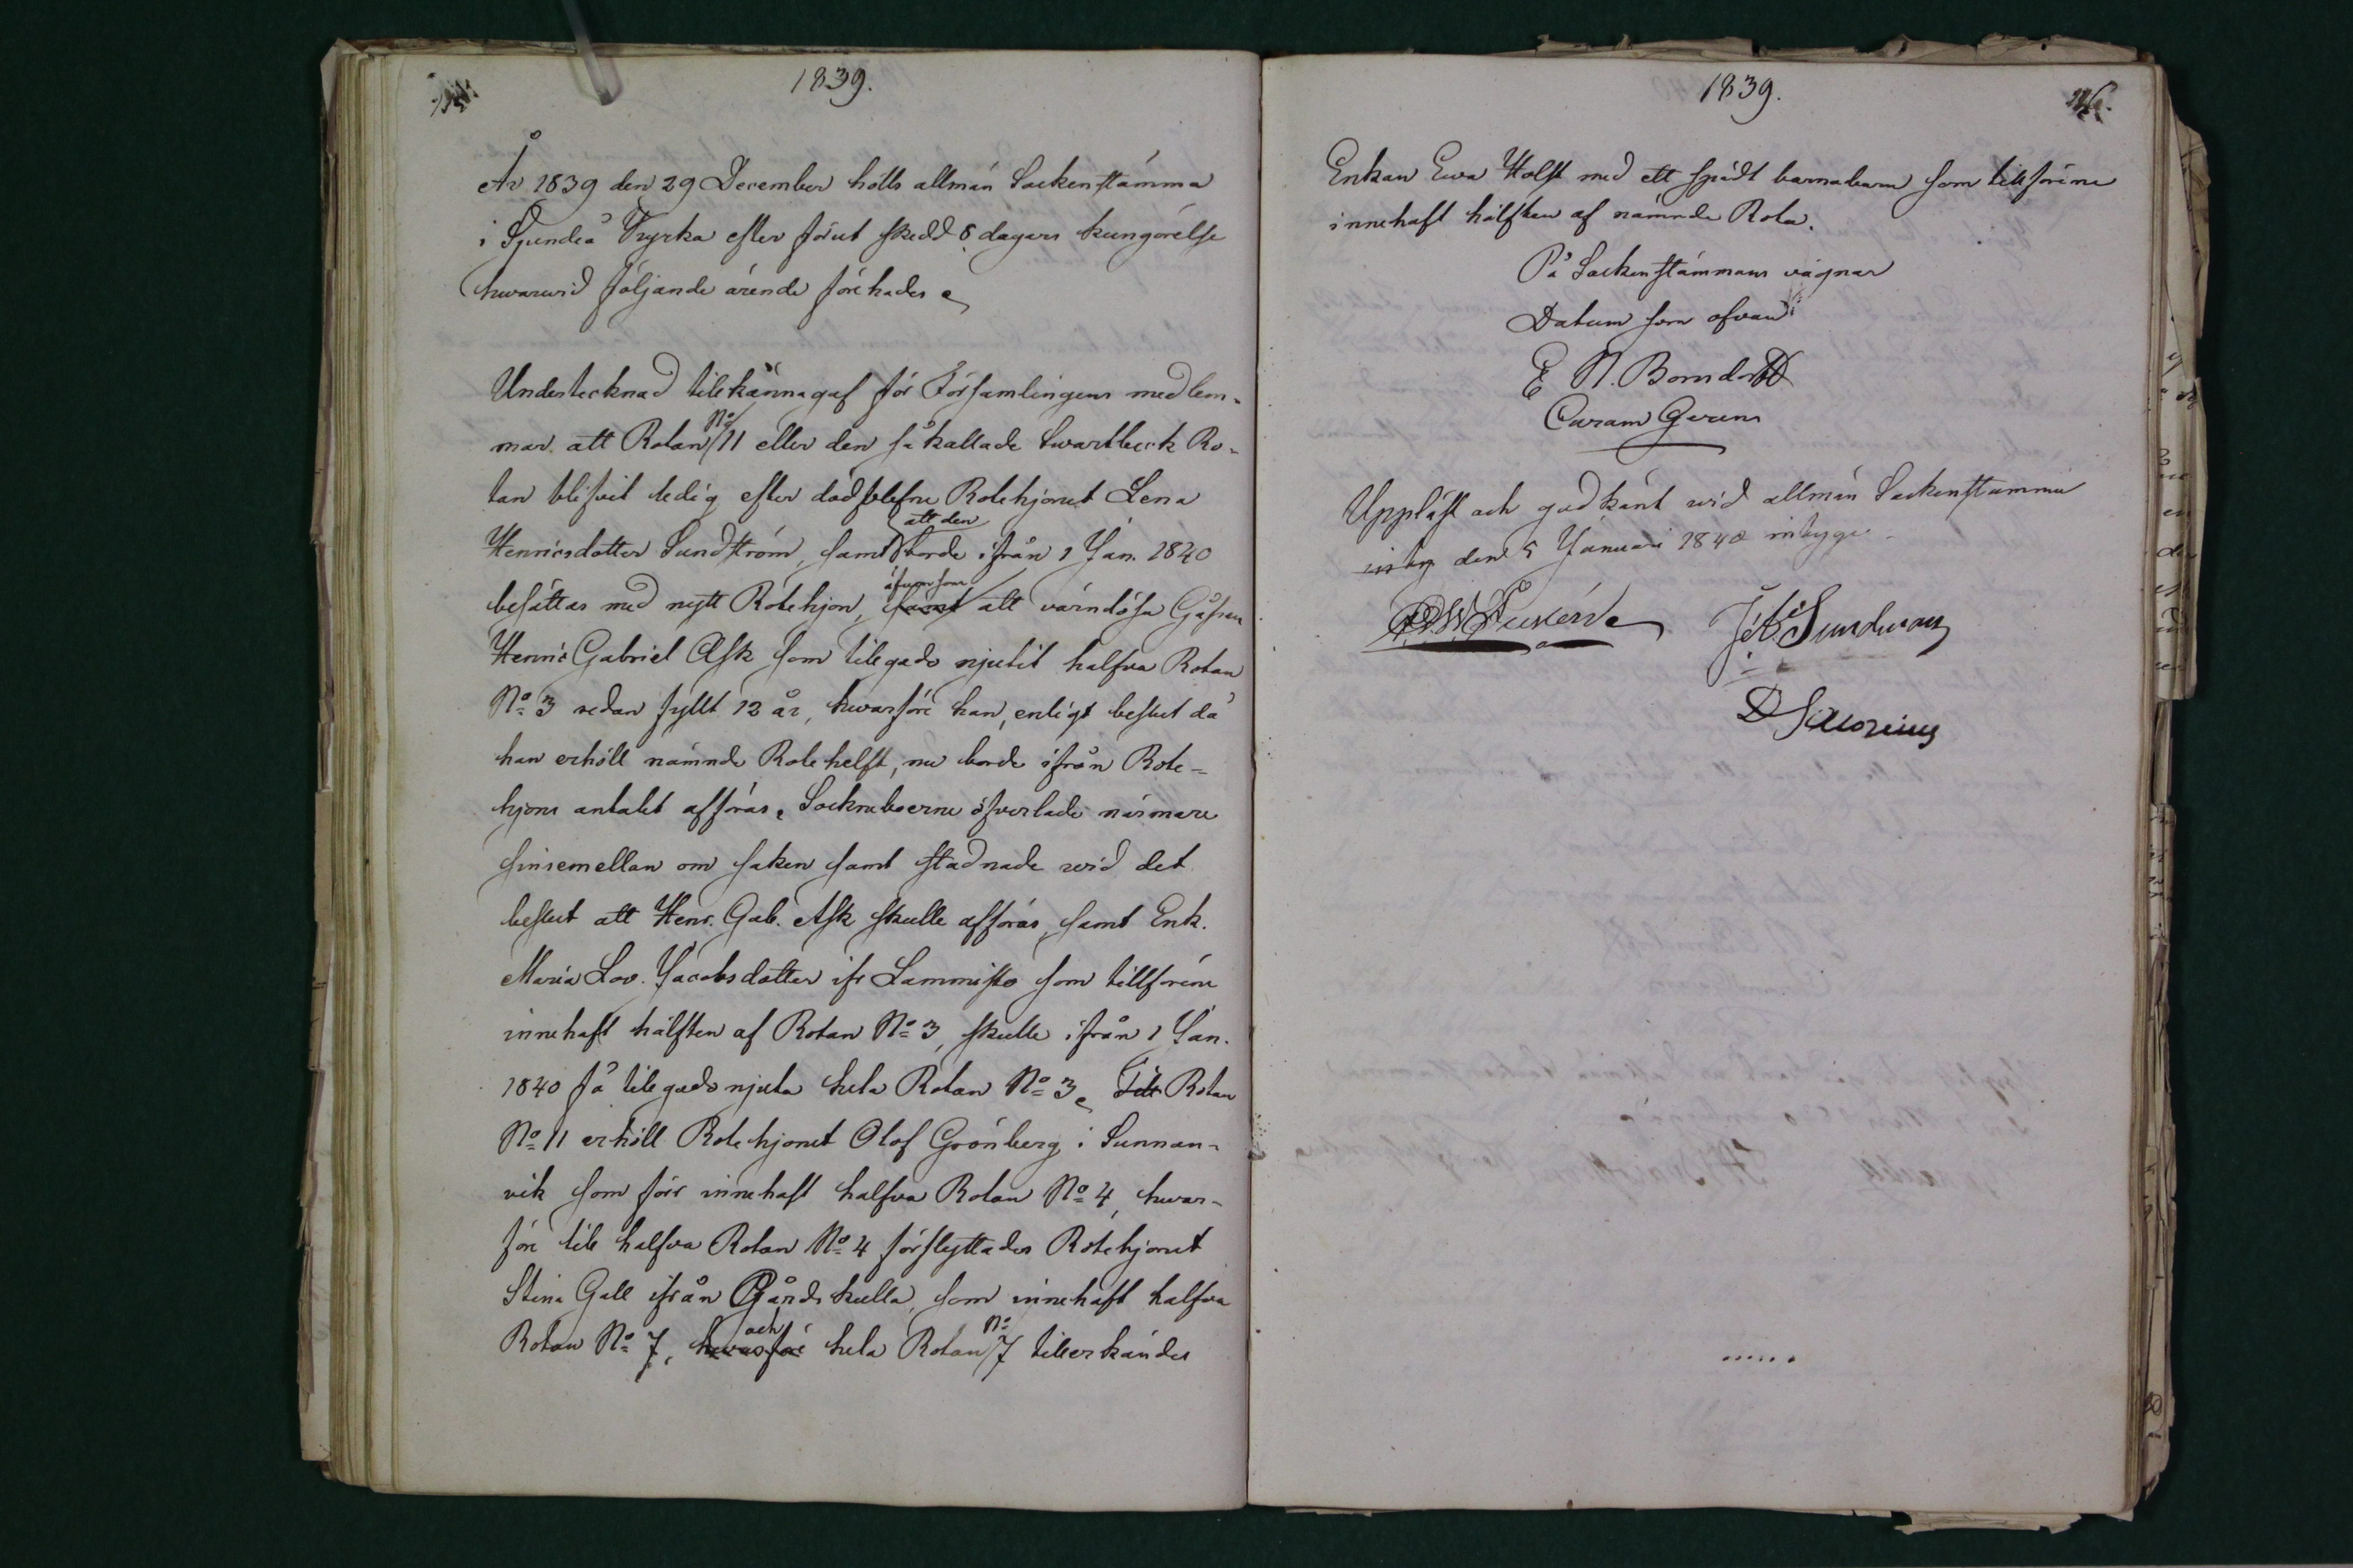 1839.
År 1839 den 29 December hölls allmän Sockenstämma
i Sjundeå Kyrka efter förut skedd 8 dagars kungörelse
hwarwid följande ärende förehades
Undertecknad tillkännagaf för Församlingens medlem-
mar att Rotan No 11 eller den så kallade Swartbeck Ro-
tan blifvit ledig efter dödblefne Rotehjonet Lena
Henricsdotter Sundström, samt att den borde ifrån 1 Jan. 1840
besättas med nytt Rotehjon, äfvensom att värnlösa Gåssen
Henric Gabriel Ask som tillgodo njutit halfva Rotan
No 3 redan fyllt 12 år, hwarföre han, enligt beslut då
han erhöll nämnde Rotehelft, nu borde ifrån Rote-
hjons antalet afföras. Sockneboerne öfverlade närmare
sinsemellan om saken samt stadnade wid det
beslut att Henr. Gab. Ask skulle afföras, samt Enk.
Maria Lov. Jacobsdotter ifr Lammisto som tillförene
innehaft hälften af Rotan No 3, skulle ifrån 1 Jan.
1840 få tillgodo njuta hela Rotan No 3. Till Rotan
No 11 erhöll Rotehjonet Olof Grönberg i Sunnan-
vik som förr innehaft halfva Rotan No 4, hwar-
före till halfva Rotan No 4 förflyttades Rotehjonet
Stina Gall ifrån Gårdskulla, som innehaft halfva
Rotan No 7, hwarföre och hela Rotan No 7 tillerkändes
1839.
Enkan Ewa Holst med ett spädt barnabarn som tillförene
innehaft hälften af nämnde Rota.
På Sockenstämmans vägnar
Datum som ofvan
E N. Borndorff
Curam Gerens
Uppläst och godkänt wid allmän Sockenstämma
den 5 Januari 1840 intyga
Sundman